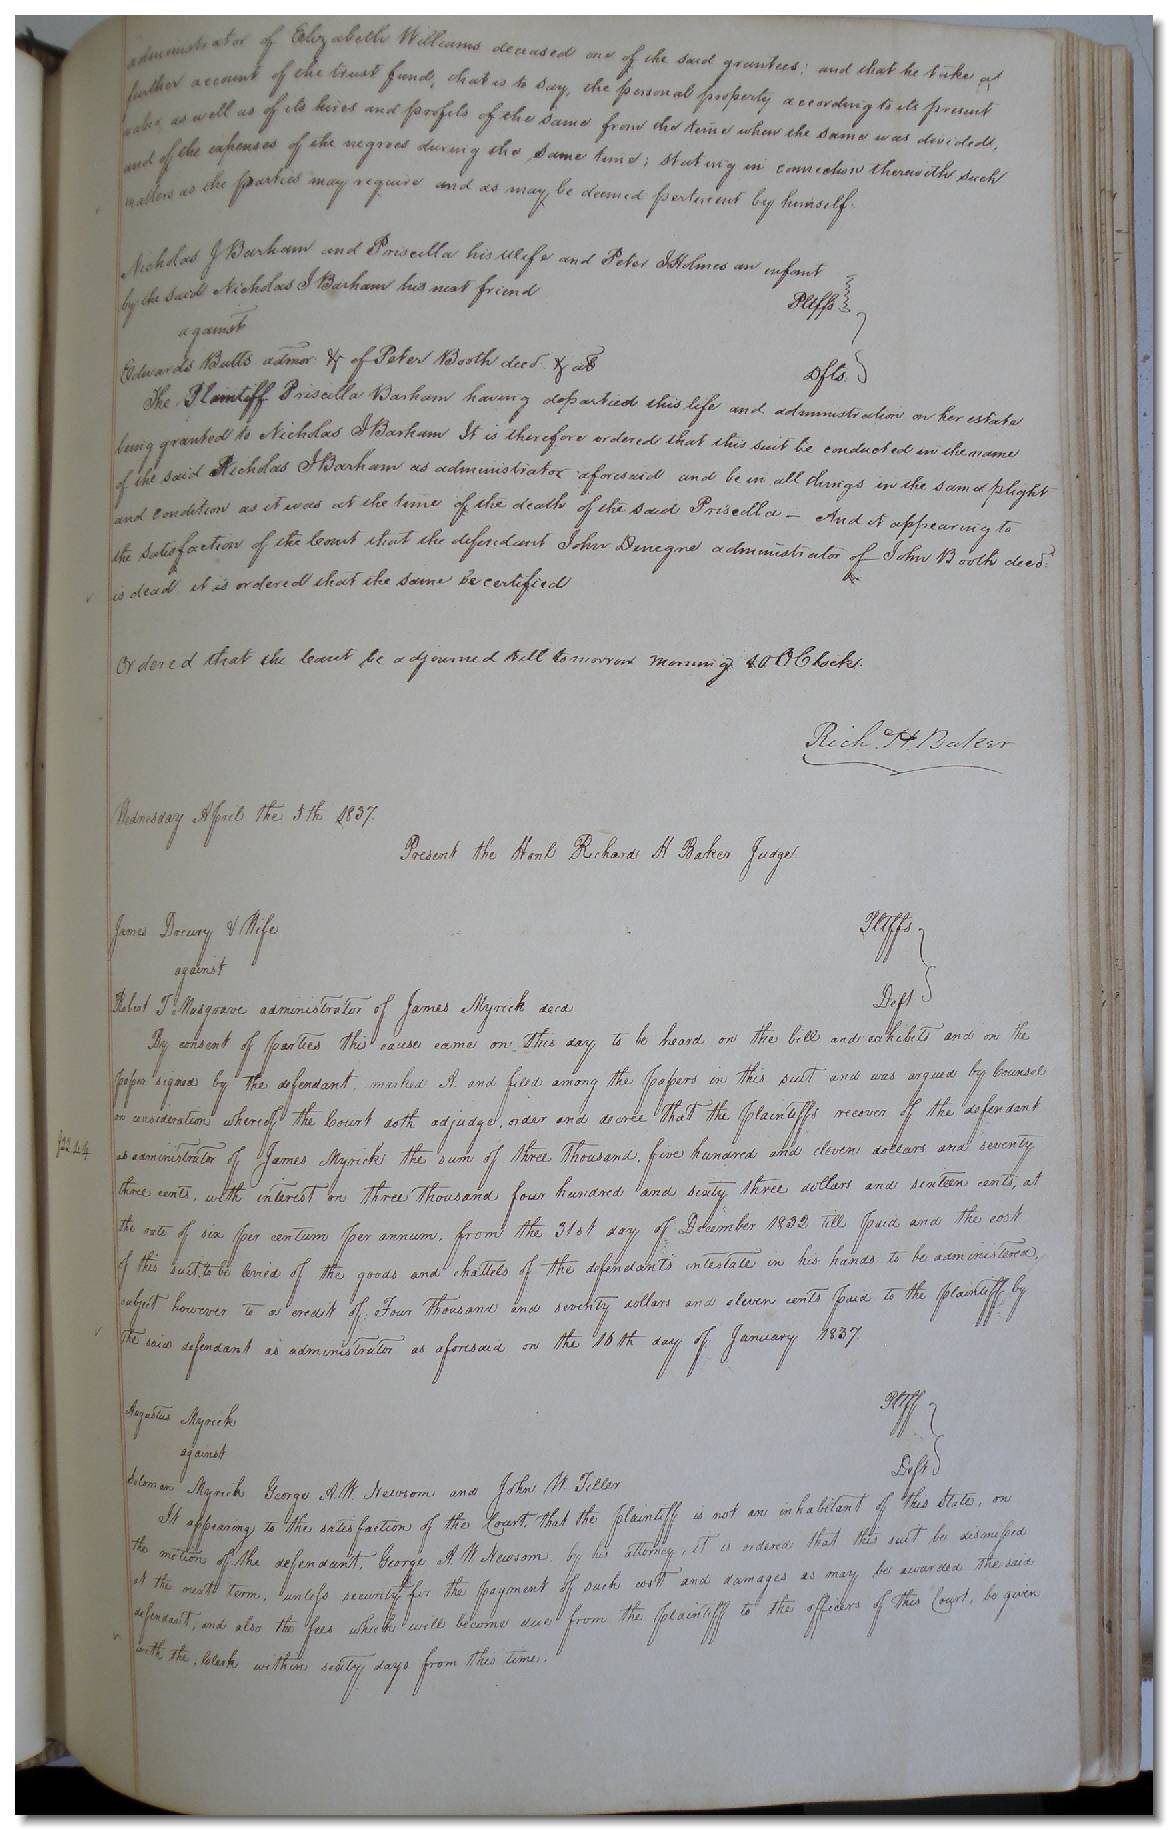 administrator of Elizabeth Williams deceased one of the said grantees; and that he take a
further account of the trust fund, that is to say, the personal property according to its present
value as well as of its hires and profits of the same from the time when the same was divided,
and of the expenses of the negroes during the same time; stating in connection therewith such
matters as the parties may require and as may be deemed pertinent by himself.
Nicholas J Barham and Priscilla his Wife and Peter J Holmes an infant
by the said Nicholas J Barham his next friend
Pltffs
against
Edwards Butts admor. & of Peter Booth decd. & als
Dfts.
The Plaintiff Priscilla Barham having departied this life and administration on her estate
being granted to Nicholas J Barham It is therefore ordered that this suit be conducted in the name
of the said Nicholas J Barham as administrator aforesaid and be in all things in the same plight
and condition as it was at the time of the death of the said Priscilla – And it appearing to
the satisfaction of the Court that the defendant John Denegre administrator of John Booth decd.
is dead it is ordered that the same be certified
Ordered that the Court be adjourned till tomorrow morning 10 O Clock.
Rich. H Baker
Wednesday April the 5th 1837.
Present the Honl Richard H Baker Judge
James Drewry & Wife
Pltffs
against
Robert T Musgrave administrator of James Myrick decd
Deft
By consent of parties this cause came on this day to be heard on the bill and exhibits and on the
paper signed by the defendant, marked A. and filed among the papers in this suit and was argued by Counsel
on consideration whereof the Court doth adjudge, order and decree that the plaintiffs recover of the defendant
as administrator of James Myrick the sum of three thousand, five hundred and eleven dollars and seventy
three cents, with interest on three thousand four hundred and sixty three dollars and sixteen cents, at
the rate of six per centum per annum, from the 31st day of December 1832 till paid and the cost
of this suit, to be levied of the goods and chattels of the defendants intestate in his hands to be administered,
subject however to a credit of Four thousand and seventy dollars and eleven cents paid to the plaintiff by
the said defendant as administrator as aforesaid on the 16th day of January 1837.
Augustus Myrick
Pltff
against
Solomon Myrick George A.W. Newsom and John W. Tiller
Deft
It appearing to the satisfaction of the Court, that the plaintiff is not an inhabitant of this State, on
the motion of the defendant, George A W Newsom, by his attorney, it is ordered that this suit be dismissed
at the next term, unless security for the payment of such cost and damages as may be awarded the said
defendant, and also the fees which will become due from the plaintiff to the officers of this Court, be given
with the Clerk within sixty days from this time.